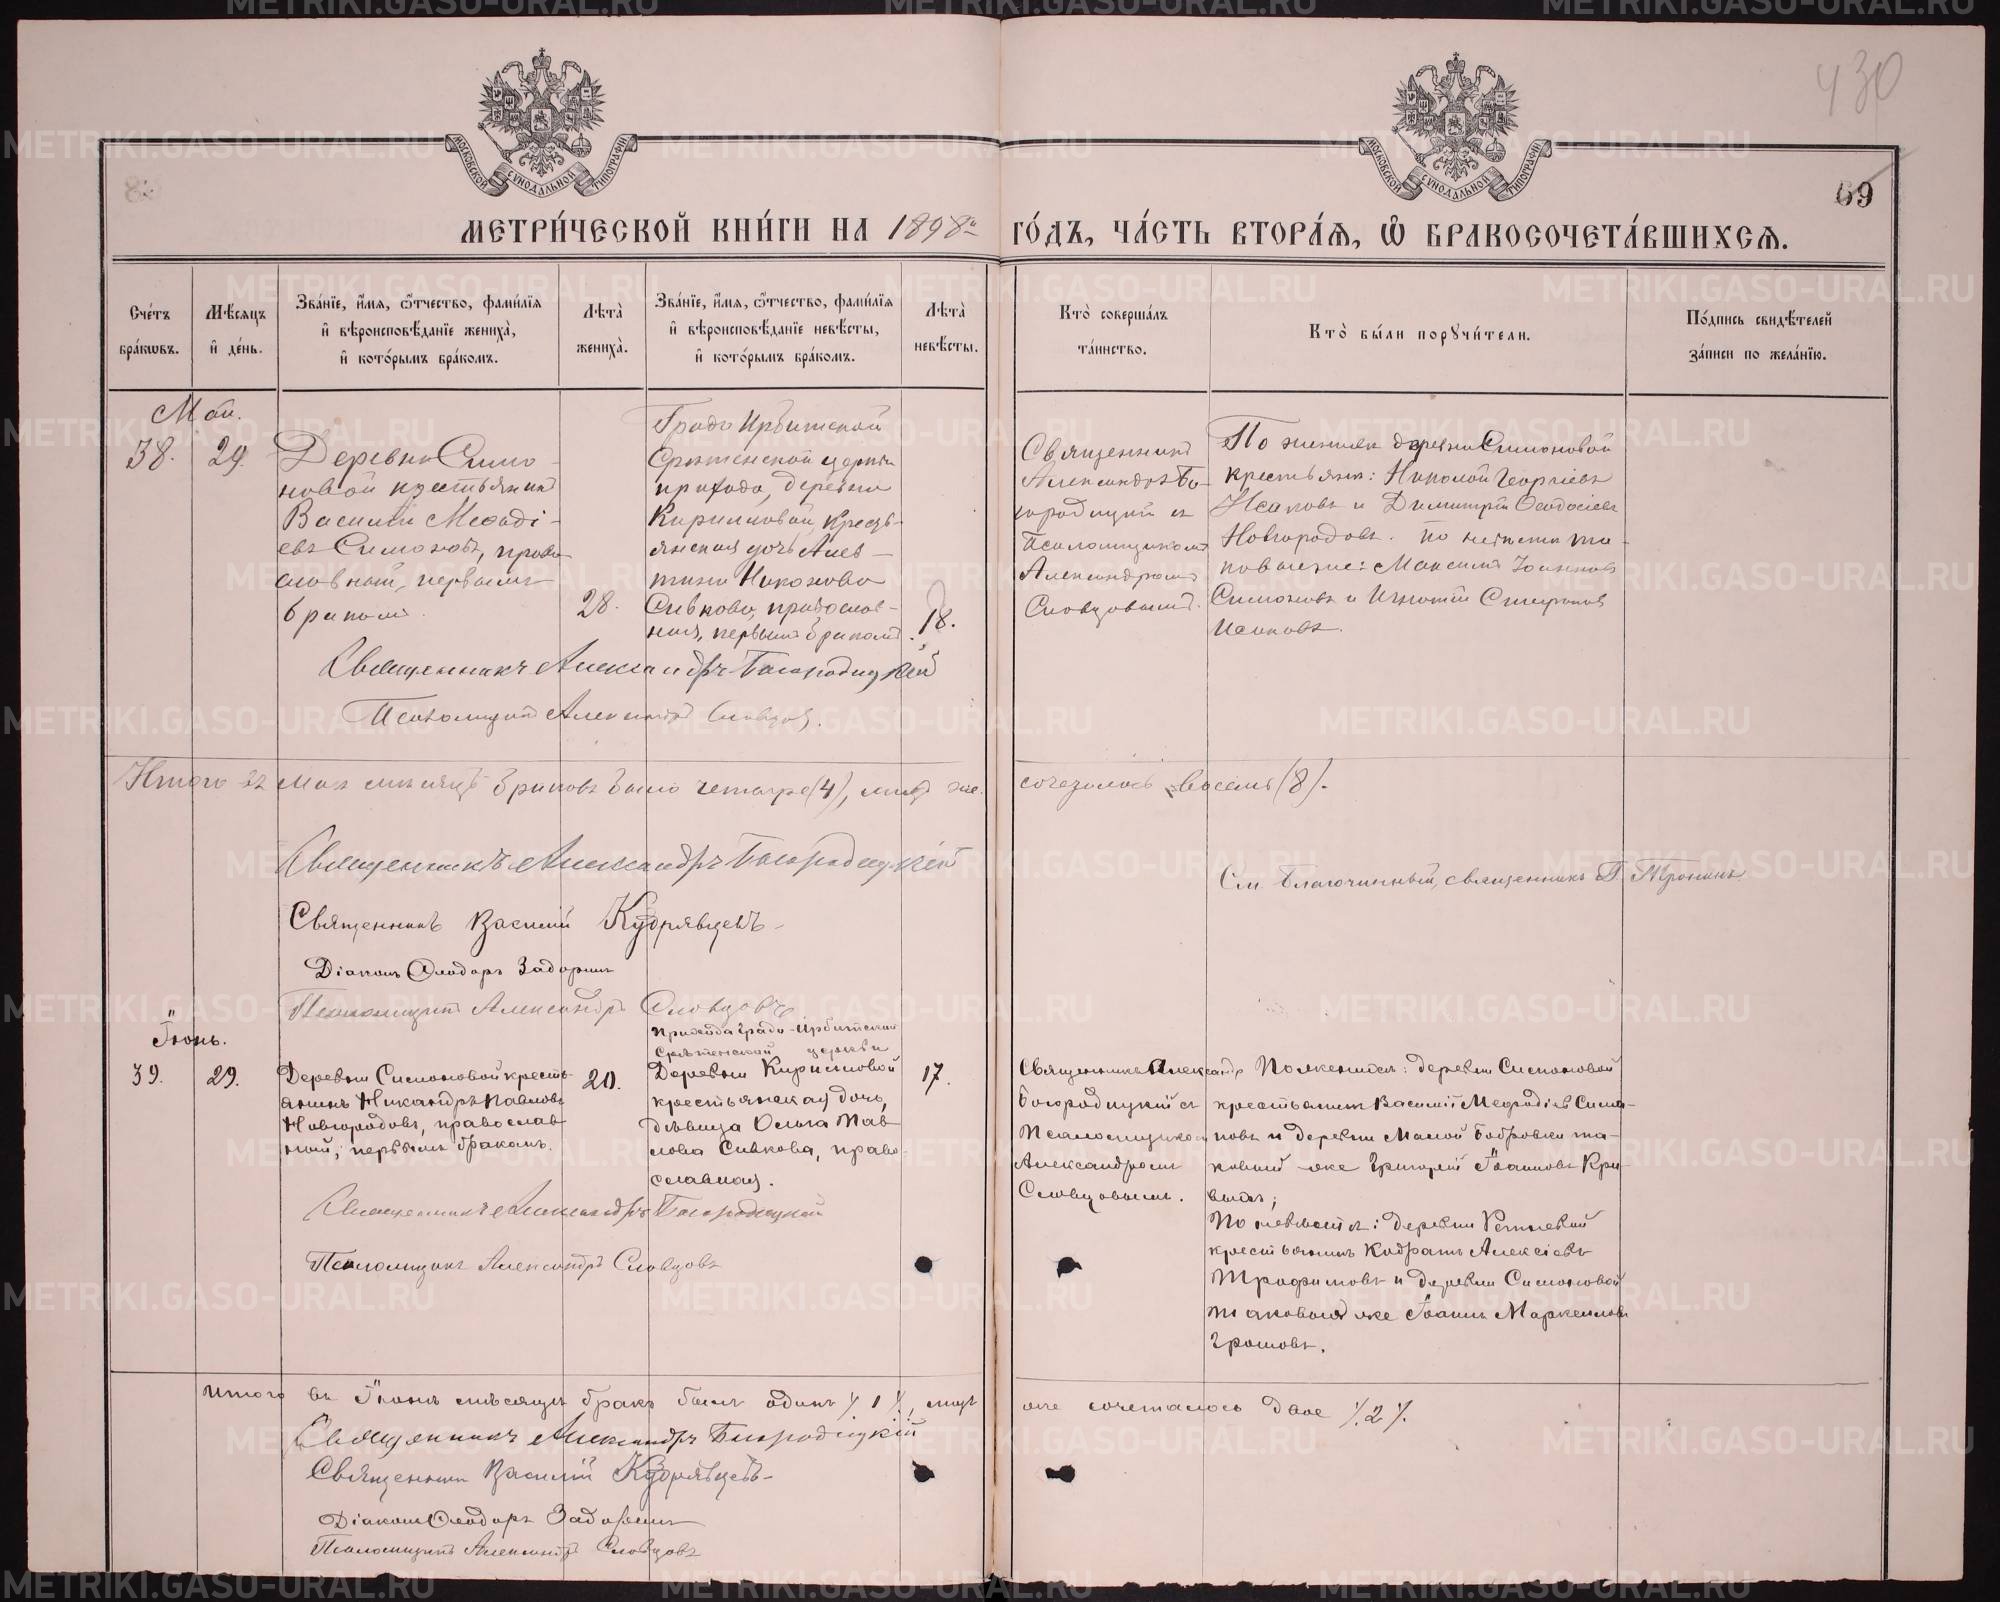 430
69
МЕТРИ́ЧЕСКОЙ КНИ́ГИ НА 1898й ГО́ДЪ, ЧА́СТЬ ВТОРА́Я, Ѡ҆ БРАКОСОЧЕТА́ВШИХСЯ.
МОСКОВСКОЙ СѴНОДАЛЬНОЙ ТИПОГРАФІИ
МОСКОВСКОЙ СѴНОДАЛЬНОЙ ТИПОГРАФІИ
Сче́тъ
бра́кѡвъ.
Мѣ́сяцъ
и҆ де́нь.
Зва́нїе, и҆́мя, ѻ҆́тчество, фами́лїя
и҆ вѣроисповѣ́данїе жениха̀,
и҆ кото́рымъ бра́комъ.
Лѣта̀
жениха̀.
Зва́нїе, и҆́мя, ѻ҆́тчество, фами́лїя
и҆ вѣроисповѣ́данїе невѣ́сты,
и҆ кото́рымъ бра́комъ.
Лѣта̀
невѣ́сты.
Кто̀ соверша́лъ
та́инство.
Кто̀ бы́ли порꙋчи́тели.
По́дпись свидѣ́телей
за́писи по жела́нїю.
Май.
38.
29.
Деревни Симо-
новой крестьянинъ
Василій Меѳоді-
евъ Симоновъ, право-
славный, первымъ
бракомъ.
28.
Градо Ирбитской
Срѣтенской церкви
прихода, деревни
Кирилловой, кресть-
янская дочь Алев-
тина Никонова
Сивкова, православ-
ная, первымъ бракомъ.
18.
Священникъ
Александръ Бо-
городицкій съ
Псаломщикомъ
Александромъ
Словцовымъ.
По женихѣ деревни Симоновой
крестьяне: Николай Георгіевъ
Исаковъ и Димитрій Ѳеодосіевъ
Новгородовъ. по невѣстѣ та-
ковые же: Максимъ Іоанновъ
Симоновъ и Игнатій Спиридоновъ
Исаковъ.
Священникъ Александръ Богородицкій
Псаломщикъ Александръ Словцовъ.
Итого въ Маѣ мѣсяцѣ браковъ было четыре (4), лицъ же сочеталось восемь (8).
Священникъ Александръ Богородицкій
См. Благочинный, священникъ П. Пронинъ
Священникъ Василій Кудрявцевъ
Діаконъ Ѳеодоръ Задоринъ
Псаломщикъ Александръ Словцовъ
Іюнь.
39.
29.
Деревни Симоновой кресть-
янинъ Никандръ Павловъ
Новгородовъ, православ-
ный, первымъ бракомъ.
20.
прихода Градо-Ирбитской
Срѣтенской церкви
Деревни Кирилловой
крестьянская дочь,
дѣвица Ольга Пав-
лова Сивкова, право-
славная.
17.
Священникъ Александръ
Богородицкій съ
Псаломщикомъ
Александромъ
Словцовымъ.
По женихѣ: деревни Симоновой
крестьянинъ Василій Меѳодіевъ Симо-
новъ и деревни Малой Бобровки та-
ковый же Григорій Іоанновъ Кри-
выхъ;
По невѣстѣ: деревни Речневой
крестьянинъ Кодратъ Алексіевъ
Трифоновъ и деревни Симоновой
таковый же Іоаннъ Маркелловъ
Громовъ.
Священникъ Александръ Богородицкій
Псаломщикъ Александръ Словцовъ
Итого въ Іюнѣ мѣсяцѣ бракъ былъ одинъ /.1./, лицъ же сочеталось двое /.2./.
Священникъ Александръ Богородицкій
Священникъ Василій Кудрявцевъ
Діаконъ Ѳеодоръ Задоринъ
Псаломщикъ Александръ Словцовъ
METRIKI.GASO-URAL.RU